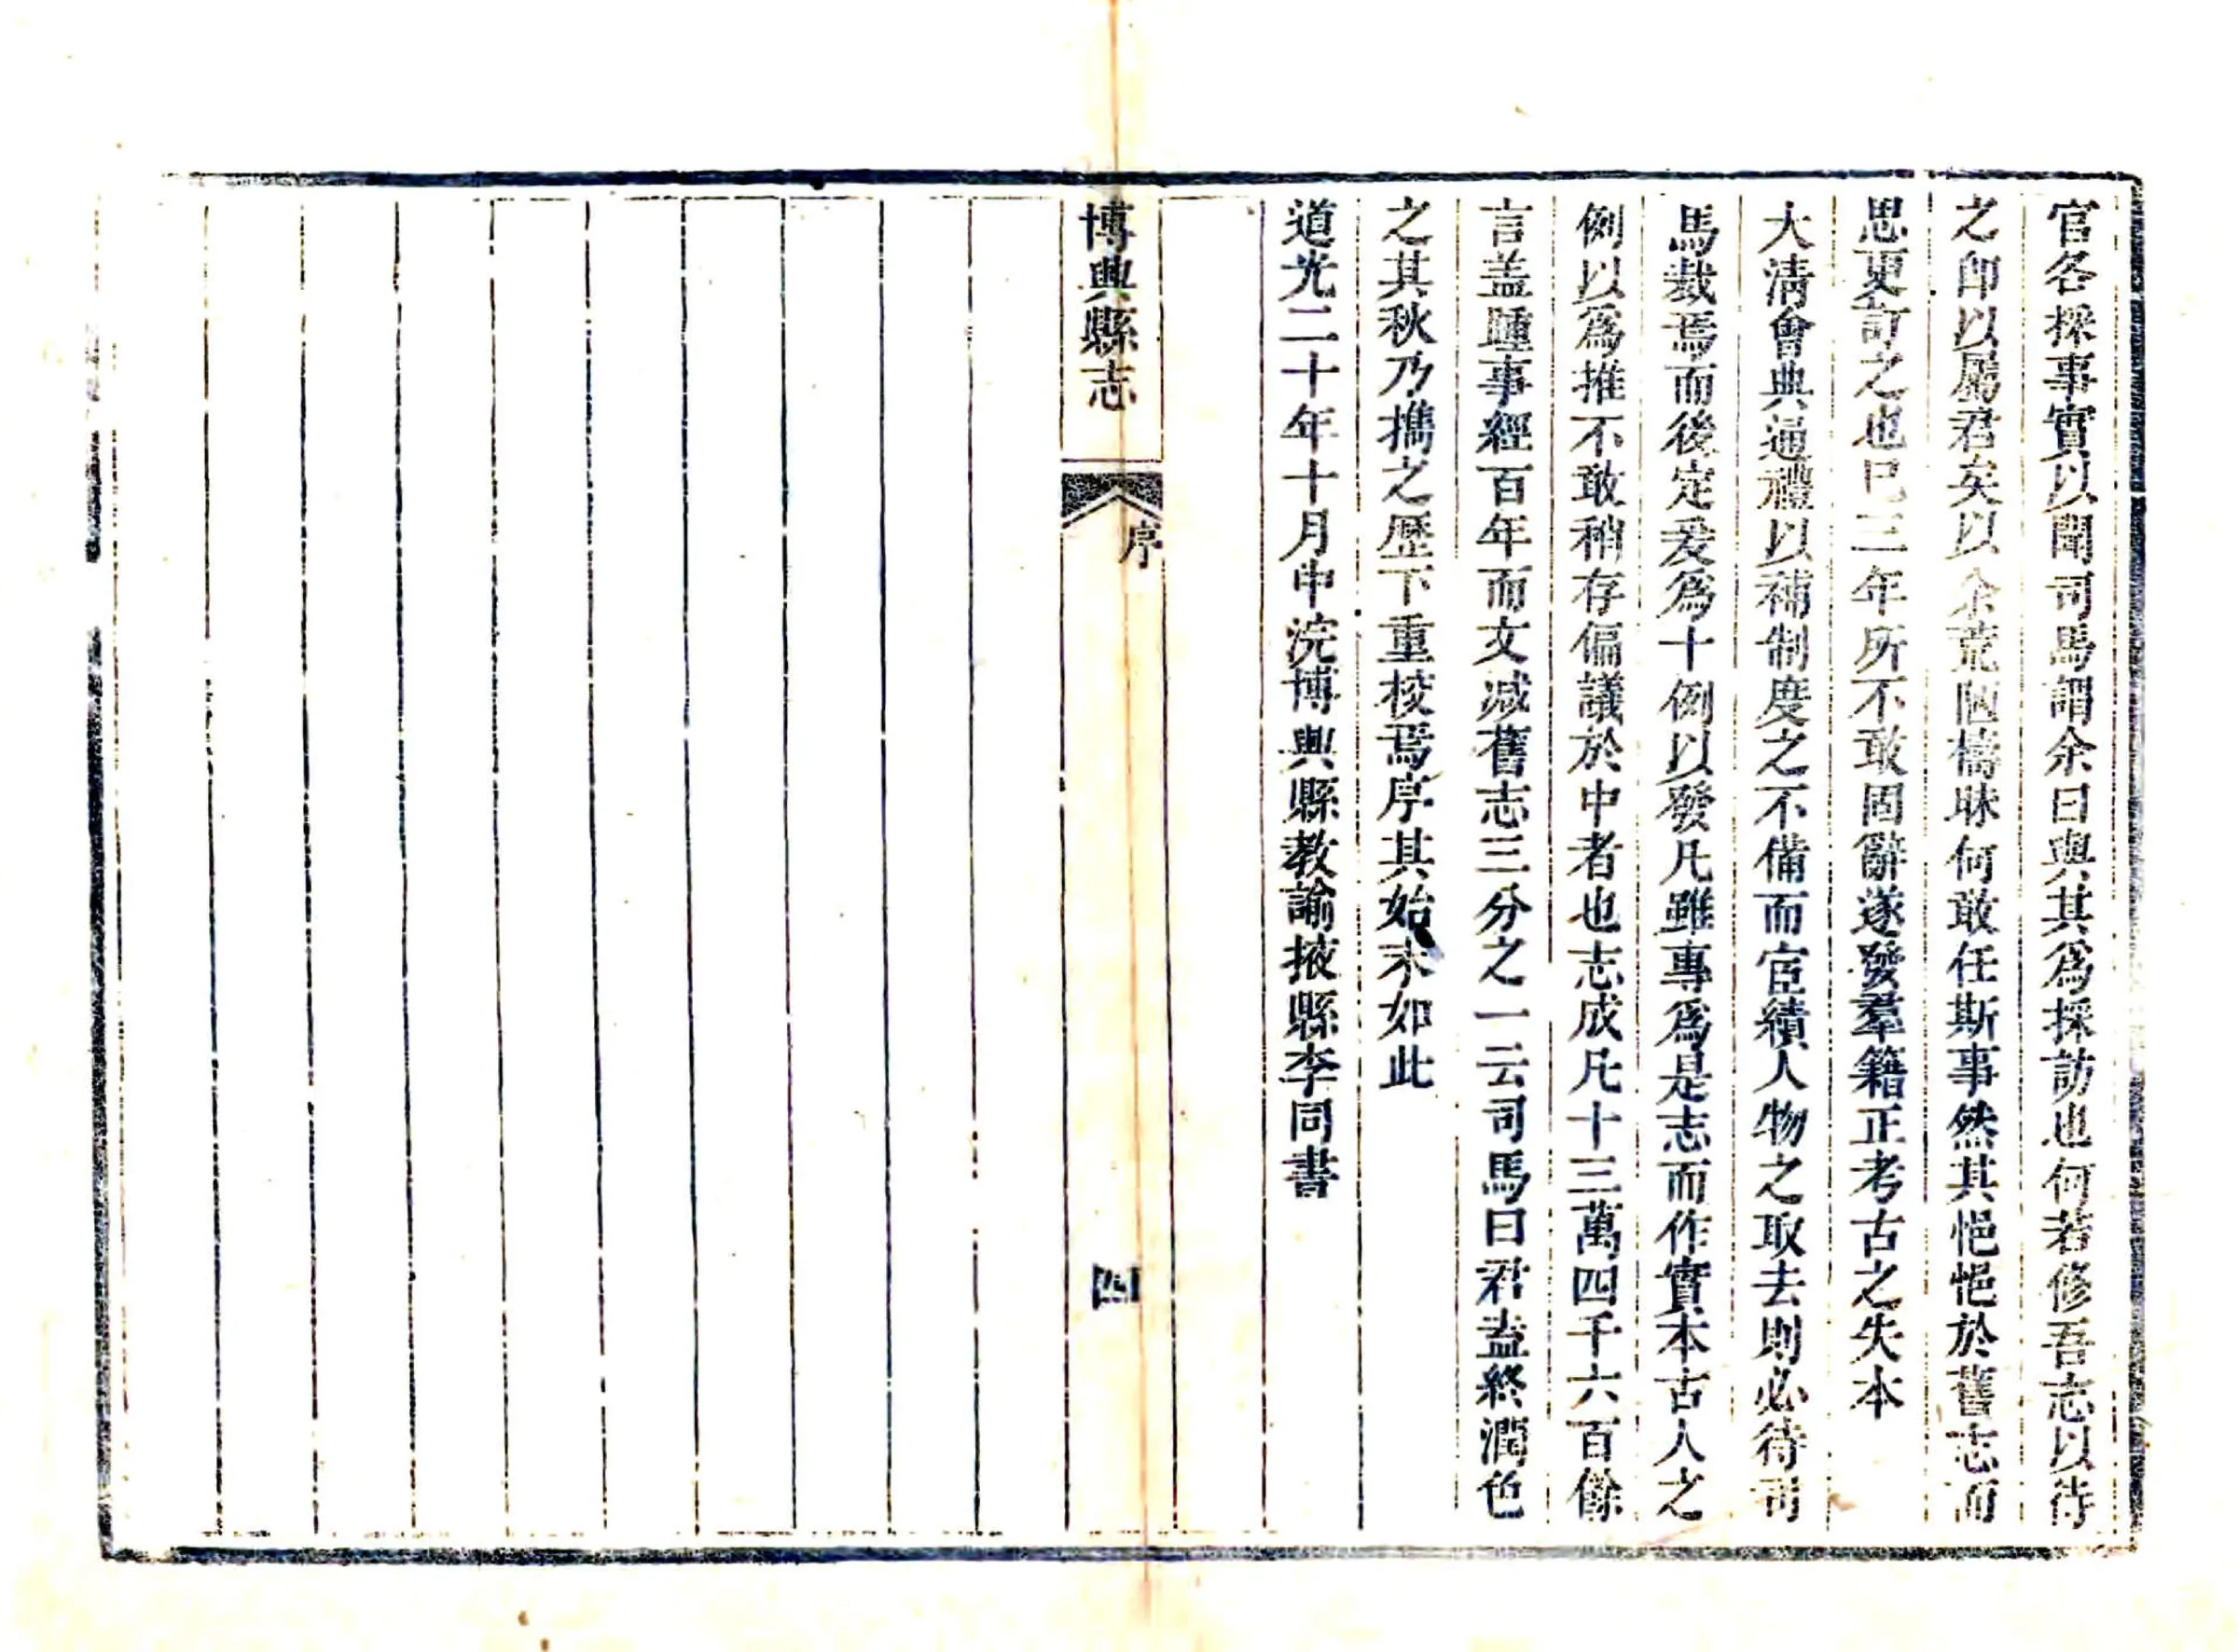 官各採事實以聞司馬謂余曰與其爲採訪也何若修吾志以待
之卽以屬君矣以余荒陋檮昧何敢任斯事然其悒悒於舊志而
思更訂之也已三年所不敢固辭遂發羣籍正考古之失本
大清會典通禮以補制度之不備而宦績人物之取去則必待司
馬裁焉而後定爰爲十例以發凡雖專爲是志而作實本古人之
例以爲推不敢稍存偏議於中者也志成凡十三萬四千六百餘
言盖踵事經百年而文减舊志三分之一云司馬曰君盍終潤色
之其秋乃攜之歷下重校焉序其始末如此
道光二十年十月中浣博興縣教諭掖縣李同書
博興縣志
序
四